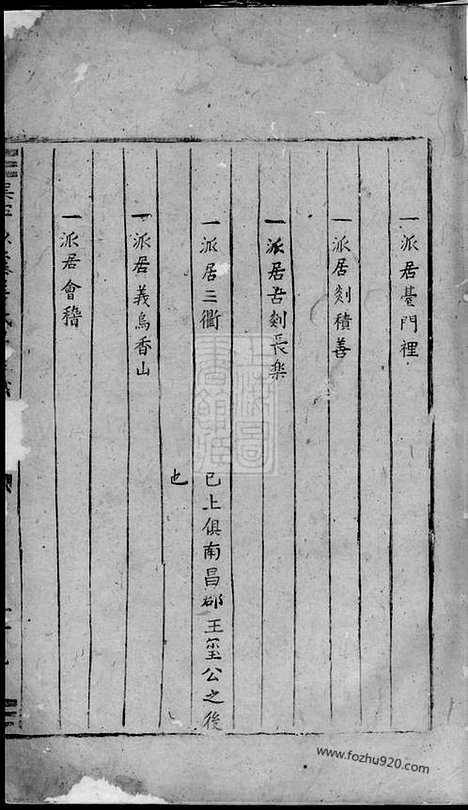 一派居臺門裡
一派居剡積善
一派居古剡長樂
一派居三衢
已上俱南昌郡王璽公之後
也
一派居義烏香山
一派居會稽
www.fozhu920.com